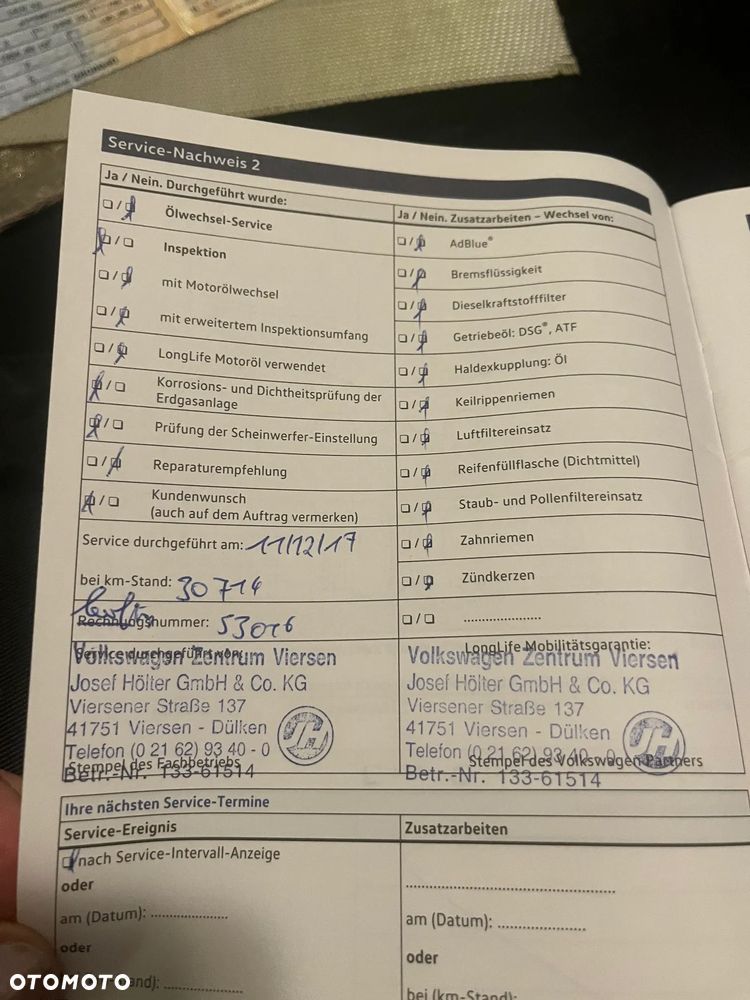 Service-Nachweis 2
Ja / Nein. Durchgeführt wurde:
Ölwechsel-Service
Inspektion
mit Motorölwechsel
mit erweitertem Inspektionsumfang
LongLife Motoröl verwendet
Korrosions- und Dichtheitsprüfung der
Erdgasanlage
Prüfung der Scheinwerfer-Einstellung
Reparaturempfehlung
Kundenwunsch
(auch auf dem Auftrag vermerken)
Service durchgeführt am: 11/12/17
bei km-Stand: 30714
Rechnungsnummer: 53016
Service durchgeführt von:
Volkswagen Zentrum Viersen
Josef Hölter GmbH & Co. KG
Viersener Straße 137
41751 Viersen - Dülken
Telefon (0 21 62) 93 40 - 0
Stempel des Fachbetriebs
Betr.-Nr. 133-61514
Ja / Nein. Zusatzarbeiten – Wechsel von:
AdBlue®
Bremsflüssigkeit
Dieselkraftstofffilter
Getriebeöl: DSG®, ATF
Haldexkupplung: Öl
Keilrippenriemen
Luftfiltereinsatz
Reifenfüllflasche (Dichtmittel)
Staub- und Pollenfiltereinsatz
Zahnriemen
Zündkerzen
....................
LongLife Mobilitätsgarantie:
Volkswagen Zentrum Viersen
Josef Hölter GmbH & Co. KG
Viersener Straße 137
41751 Viersen - Dülken
Telefon (0 21 62) 93 40 - 0
Stempel des Volkswagen Partners
Betr.-Nr. 133-61514
Ihre nächsten Service-Termine
Service-Ereignis
nach Service-Intervall-Anzeige
oder
am (Datum): ....................
oder
Zusatzarbeiten
am (Datum): ....................
oder
bei (km-Stand):
OTOMOTO